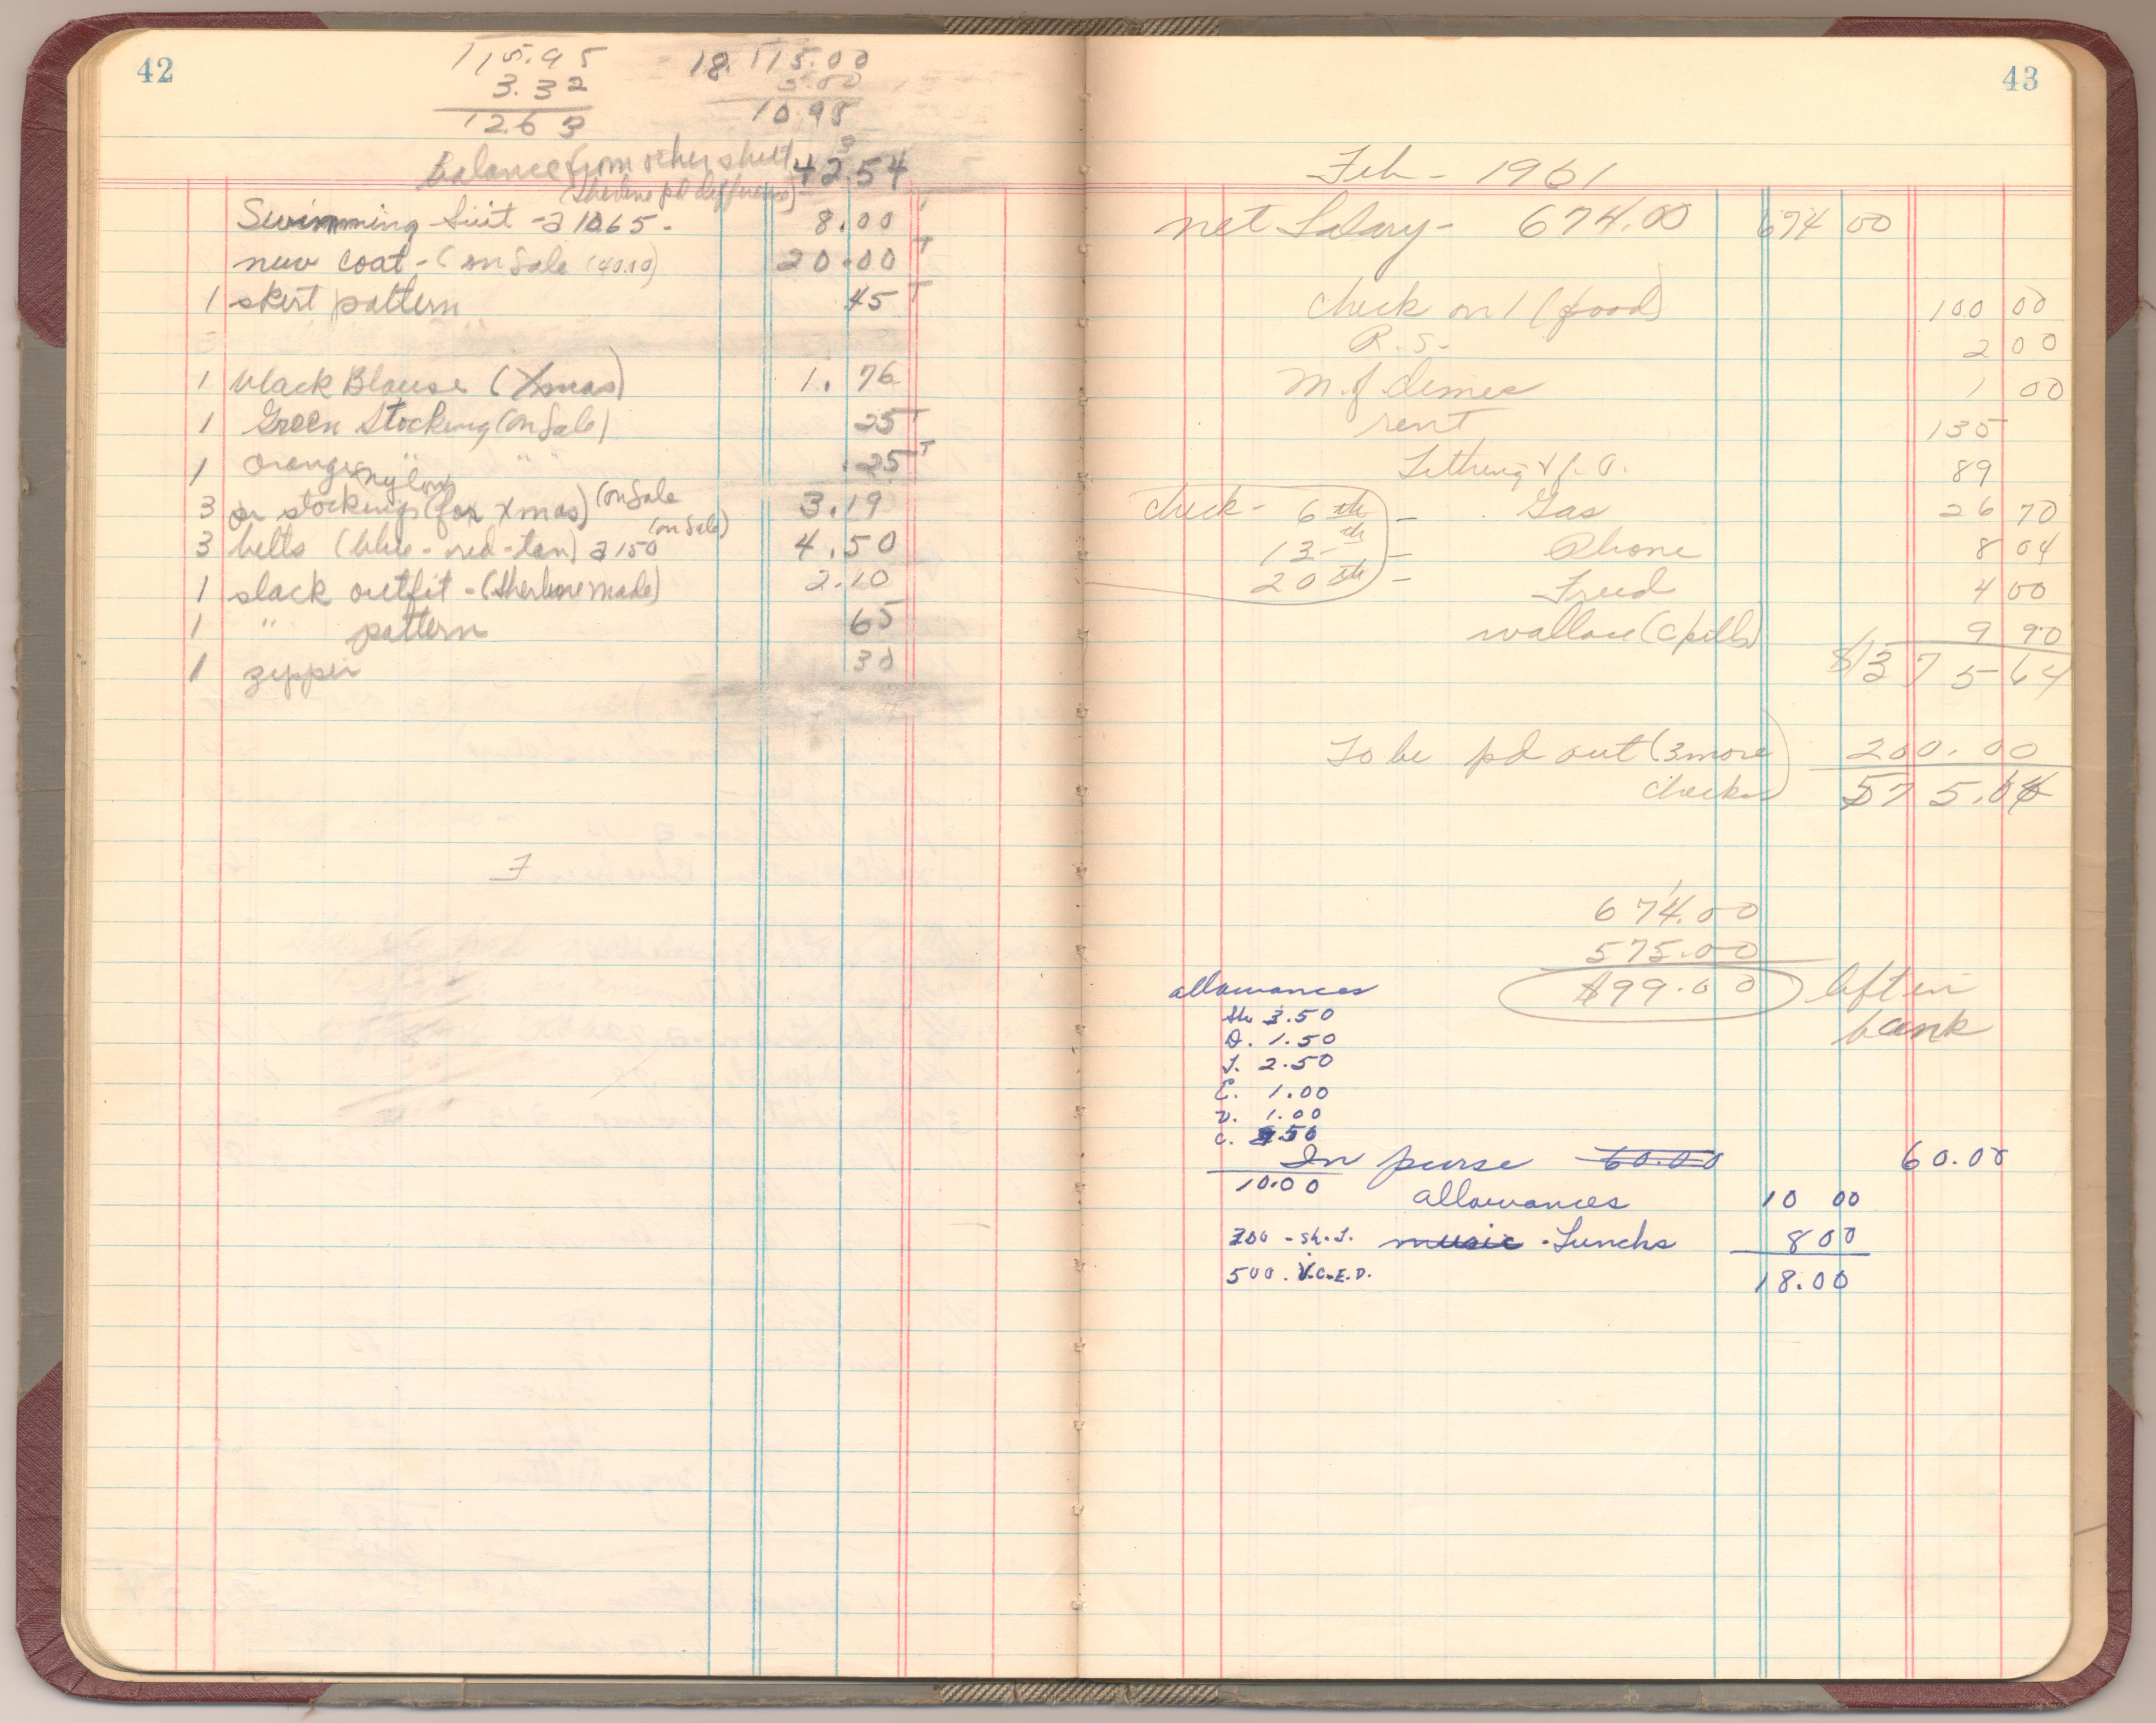 42
115.95
3.32
12.63
18. 115.00
3.00
10.98
Balance from other sheet 42.54
3
(Sherlene pd difference)
Swimming Suit - a 10.65 - 8.00
new coat - (on Sale (40.00) 20.00 T
1 skirt pattern 45 T
1 black Blouse (Xmas) 1.76
1 Green Stocking (on Sale) 25 T
1 orange " " .25 T
nylons
3 pr stockings (for Xmas) (on Sale 3.19
3 belts (blue - red - tan) a 150 (on Sale) 4.50
1 slack outfit - (Sherlene made) 2.10
1 " pattern 65
1 zipper 30
F
43
Feb - 1961
net Salary - 674.00 674 00
check on 1 (food) 100 00
R. S. 2 00
M. of dimes 1 00
rent 135
Tithing & f. O. 89
check - 6th - Gas 26 70
13-th - Phone 8 04
20th - Freed 4 00
wallace (C pills) 9 90
$375 64
To be pd out (3 more 200.00
checks) 575.64
674.00
575.00
$99.00 left in
bank
allowances
Sh 3.50
D. 1.50
J. 2.50
E. 1.00
V. 1.00
C. .50
10.00
In purse 60.00 60.00
allowances 10 00
300 - Sh. J. music - Lunchs 8 00
500. V.C.E.D. 18.00